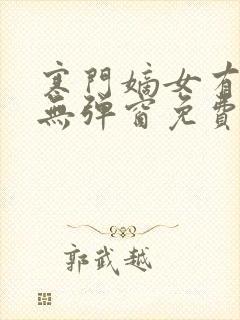 寒門嫡女有
無彈窗免費
郭武越